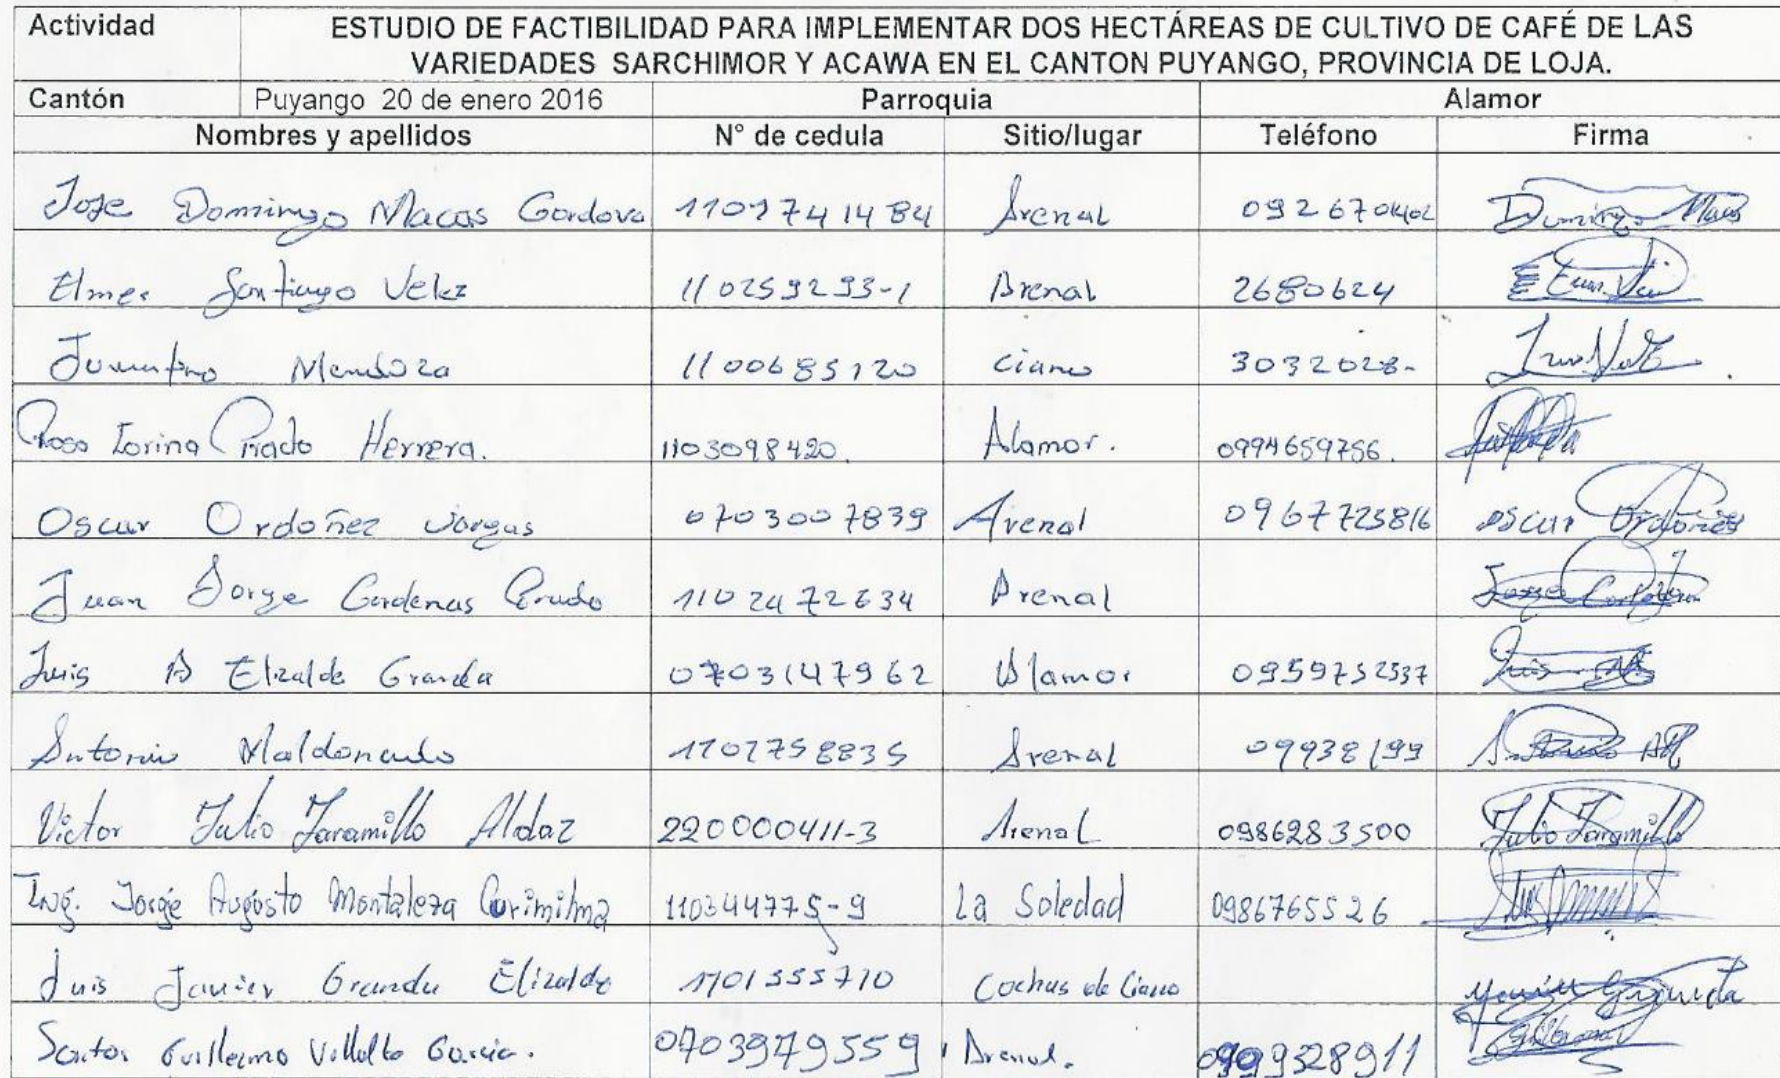 Actividad ESTUDIO DE FACTIBILIDAD PARA IMPLEMENTAR DOS HECTÁREAS DE CULTIVO DE CAFÉ DE LAS
VARIEDADES SARCHIMOR Y ACAWA EN EL CANTON PUYANGO, PROVINCIA DE LOJA.
Cantón Puyango 20 de enero 2016 Parroquia Alamor
Nombres y apellidos N° de cedula Sitio/lugar Teléfono Firma
Jose Domingo Macas Cordova Arenal Domingo
Elmer Santiago Velez 110259293-1 Arenal 2680624
Mendoza 1100685120 Ciano 3032028-
Rosa Prado Herrera. 1103098420. Alamor. 0994659756.
Oscar Ordoñez Vargas 0703007839 Arenal 0967725816 Oscar Ordoñez
Juan Jorge Cardenas Prado 1102472634 Arenal Jorge
Luis A Elizalde Granda 0703147962 Alamor 0959752537 Luis
Antonio Maldonado Arenal 09938199
Victor Julio Jaramillo Aldaz 220000411-3 Arenal 0986283500 Julio Jaramillo
Ing. Jorge Augusto Montaleza Curimilma 110344775-9 La Soledad 0986765526
Luis Javier Granda Elizalde 1701355710 Cochas de Ciano Granda
Santos Guillermo Garcia. 0703979559 Arenal.